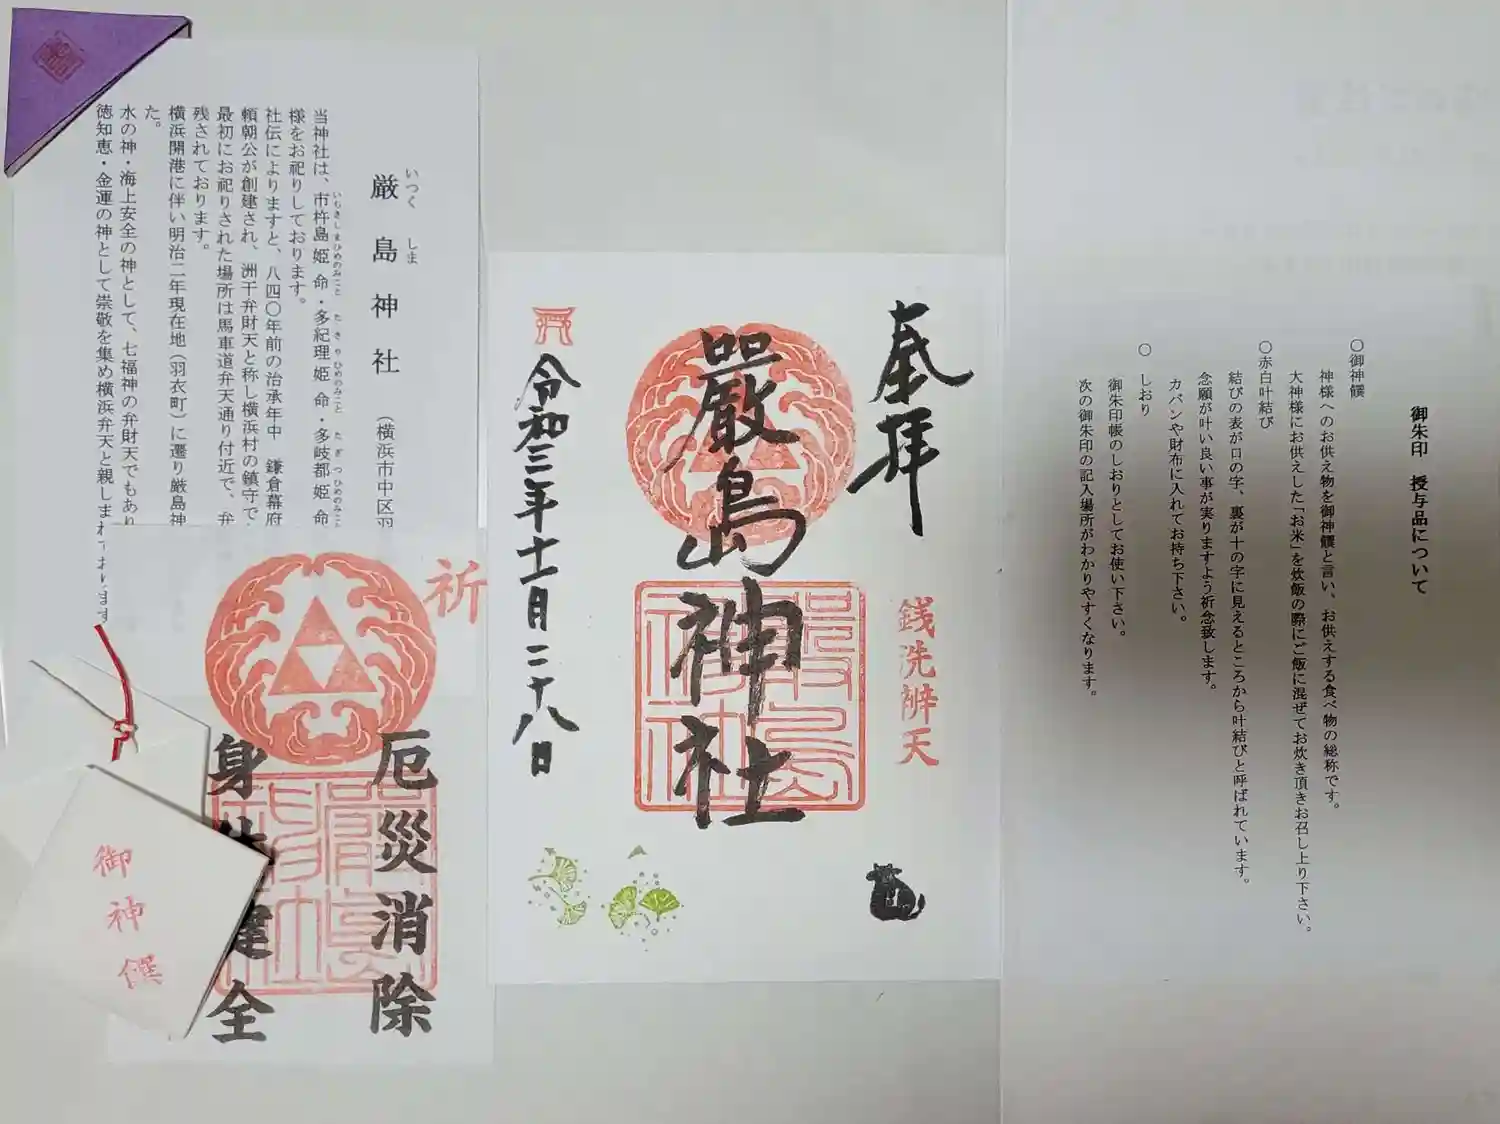 御朱印　授与品について
〇御神饌
神様へのお供え物を御神饌と言い、お供えする食べ物の総称です。
大神様にお供えした「お米」を炊飯の際にご飯に混ぜてお炊き頂きお召し上り下さい。
〇赤白叶結び
結びの表が口の字、裏が十の字に見えるところから叶結びと呼ばれています。
念願が叶い良い事が実りますよう祈念致します。
カバンや財布に入れてお持ち下さい。
〇しおり
御朱印帳のしおりとしてお使い下さい。
次の御朱印の記入場所がわかりやすくなります。
奉拝
銭洗辨天
嚴島神社
令和三年十一月二十八日
いつくしま
厳島神社
（横浜市中区羽
当神社は、市杵島姫命・多紀理姫命・多岐都姫命
いちきしまひめのみこと　たきりひめのみこと　たぎつひめのみこと
様をお祀りしております。
社伝によりますと、八四〇年前の治承年中　鎌倉幕府
頼朝公が創建され、洲干弁財天と称し横浜村の鎮守で
最初にお祀りされた場所は馬車道弁天通り付近で、弁
残されております。
横浜開港に伴い明治二年現在地（羽衣町）に遷り厳島神
た。
水の神・海上安全の神として、七福神の弁財天でもあり
徳知恵・金運の神として崇敬を集め横浜弁天と親しまれております
祈
厄災消除
身体健全
御神饌